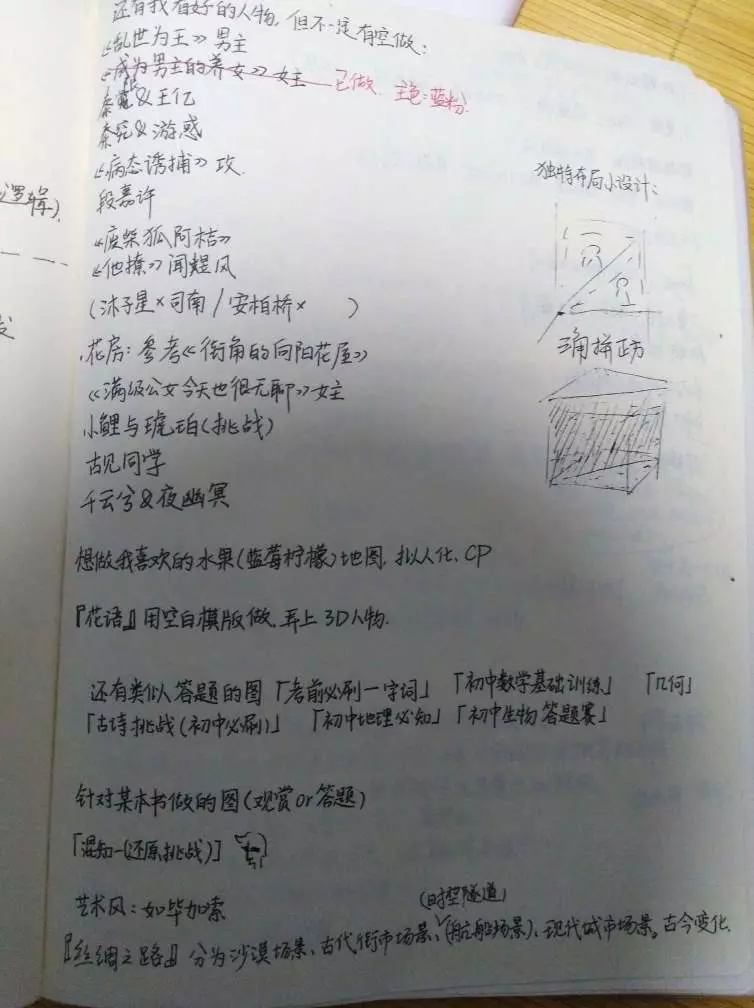 还有我有好的人物，但不一定有空做：
《乱世为王》男主
《成为男主的养女》女主 — 已做. 主色：蓝粉.
秦&王亿
秦究&游惑
《病态诱捕》攻.
段嘉许
《废柴狐阿桔》
《他撩》闻煜风
(沐子星×司南/安柏桥× )
花房：参考《街角的向阳花屋》
《满级公女今天也很无聊》女主
小鲤与琥珀(挑战)
古见同学
千云兮&夜幽冥
想做我喜欢的水果(蓝莓柠檬)地图. 拟人化、CP
『花语』用空白模版做. 弄上3D人物.
还有类似答题的图「考前必刷一字词」 「初中数学基础训练」 「几何」
「古诗挑战(初中必刷)」 「初中地理必知」「初中生物答题赛」
针对某本书做的图(观赏or答题)
「混知—(还原挑战)」
艺术风：如毕加索
(时空隧道)
『丝绸之路』分为沙漠场景、古代街市场景、(航船场景)、现代城市场景。古今变化.
独特布局小设计：
三角拼正方
逻辑).